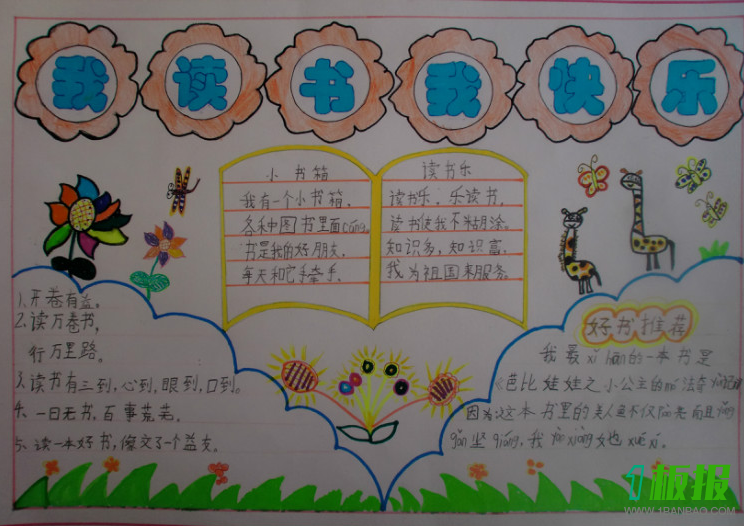 我读书我快乐
小书箱
我有一个小书箱,
各种图书里面cáng。
书是我的好朋友,
每天和它手牵手。
读书乐
读书乐,乐读书,
读书使我不粘胡涂。
知识多,知识富,
我为祖国来服务。
1.开卷有益。
2.读万卷书,
行万里路。
3.读书有三到,心到,眼到,口到。
4、一日无书,百事荒芜。
5、读一本好书,像交了一个益友。
好书推荐
我最xǐ huān的一本书是
《芭比娃娃之小公主的mó法奇
因为这本书里的美人鱼不仅 而且
坐qiáng,我 xiàng她也xué xí。
1板报
WWW.1BANBAO.COM